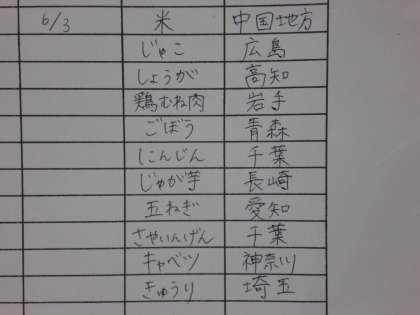 6/3 米 中国地方
じゃこ 広島
しょうが 高知
鶏むね肉 岩手
ごぼう 青森
にんじん 千葉
じゃが芋 長崎
玉ねぎ 愛知
さやいんげん 千葉
キャベツ 神奈川
きゅうり 埼玉